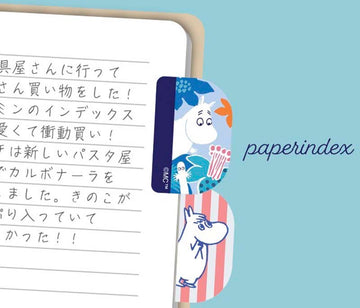 具屋さんに行って
さん買い物をした！
ミンのインデックス
愛くて衝動買い！
チは新しいパスタ屋
でカルボナーラを
ました。きのこが
り入っていて
かった！！
©MC™
paperindex